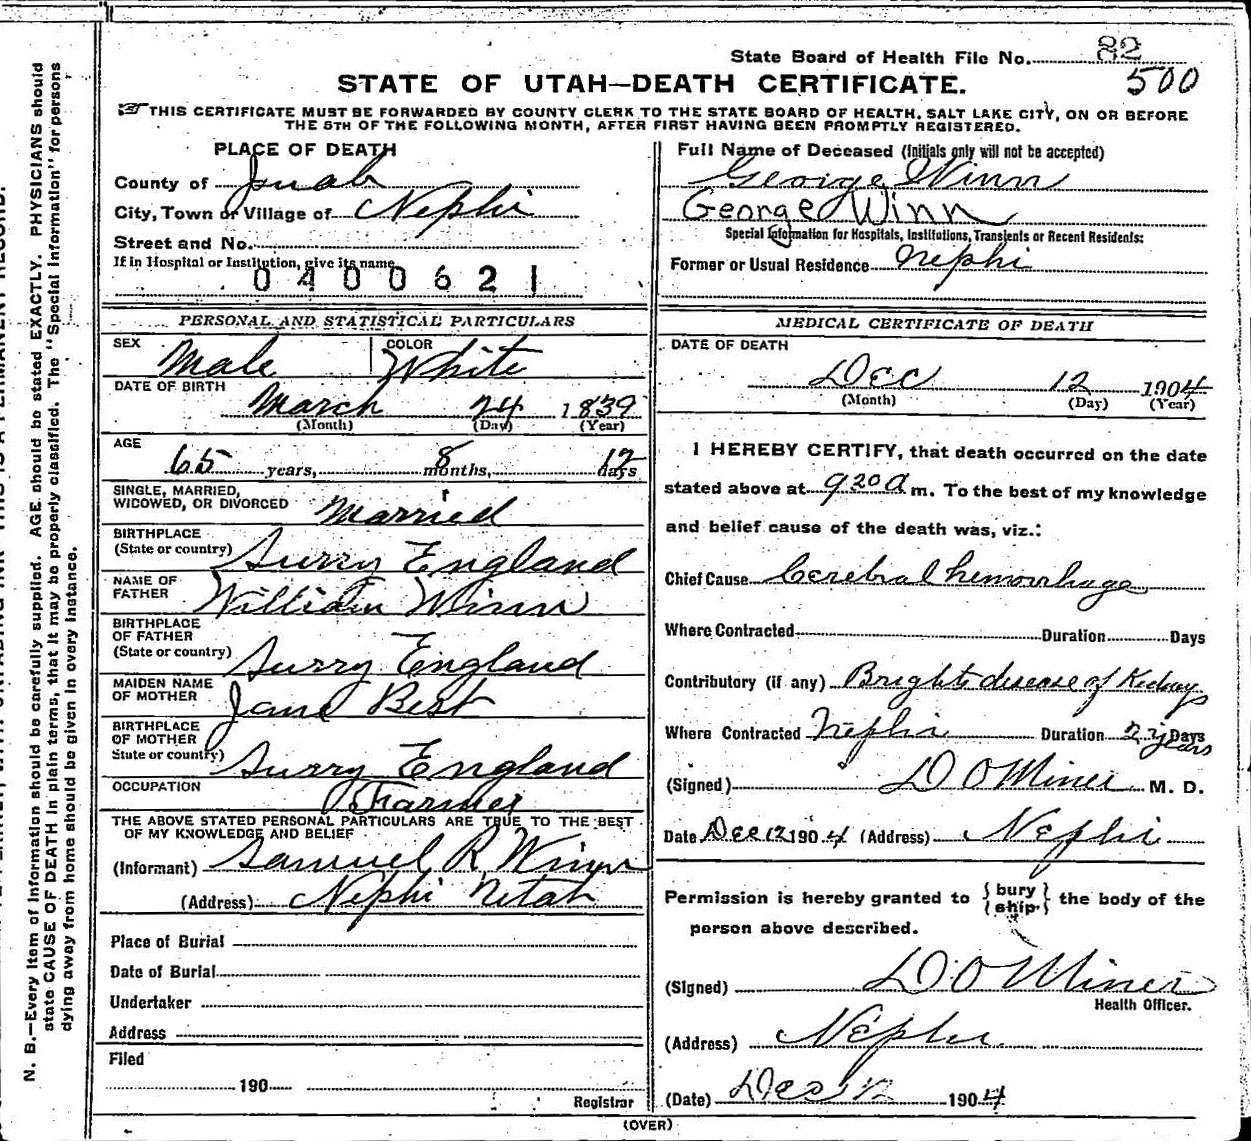 State Board of Health File No. 82
500
STATE OF UTAH—DEATH CERTIFICATE.
THIS CERTIFICATE MUST BE FORWARDED BY COUNTY CLERK TO THE STATE BOARD OF HEALTH, SALT LAKE CITY, ON OR BEFORE
THE 5TH OF THE FOLLOWING MONTH, AFTER FIRST HAVING BEEN PROMPTLY REGISTERED.
PLACE OF DEATH
County of Juab
City, Town or Village of Nephi
Street and No.
If in Hospital or Institution, give its name
0400621
Full Name of Deceased (Initials only will not be accepted)
George Winn
George Winn
Special Information for Hospitals, Institutions, Transients or Recent Residents:
Former or Usual Residence Nephi
PERSONAL AND STATISTICAL PARTICULARS
SEX Male COLOR White
DATE OF BIRTH March 24 1839
(Month) (Day) (Year)
AGE 65 years, 8 months, 12 days
SINGLE, MARRIED,
WIDOWED, OR DIVORCED Married
BIRTHPLACE
(State or country) Surry England
NAME OF
FATHER William Winn
BIRTHPLACE
OF FATHER
(State or country) Surry England
MAIDEN NAME
OF MOTHER Jane Best
BIRTHPLACE
OF MOTHER
State or country) Surry England
OCCUPATION Farmer
THE ABOVE STATED PERSONAL PARTICULARS ARE TRUE TO THE BEST
OF MY KNOWLEDGE AND BELIEF
(Informant) Samuel R Winn
(Address) Nephi Utah
Place of Burial
Date of Burial
Undertaker
Address
Filed
190
Registrar
MEDICAL CERTIFICATE OF DEATH
DATE OF DEATH
Dec 12 1904
(Month) (Day) (Year)
I HEREBY CERTIFY, that death occurred on the date
stated above at 920 a m. To the best of my knowledge
and belief cause of the death was, viz.:
Chief Cause Cerebral hemorrhage
Where Contracted Duration Days
Contributory (if any) Brights disease of Kidneys
Where Contracted Nephi Duration 2 Days
years
(Signed) D O Miner M. D.
Date Dec 12 1904 (Address) Nephi
Permission is hereby granted to {bury
ship} the body of the
person above described.
(Signed) D O Miner
Health Officer.
(Address) Nephi
(Date) Dec 12 1904
(OVER)
N. B.—Every item of information should be carefully supplied. AGE should be stated EXACTLY. PHYSICIANS should
state CAUSE OF DEATH in plain terms, that it may be properly classified. The "Special Information" for persons
dying away from home should be given in every instance.